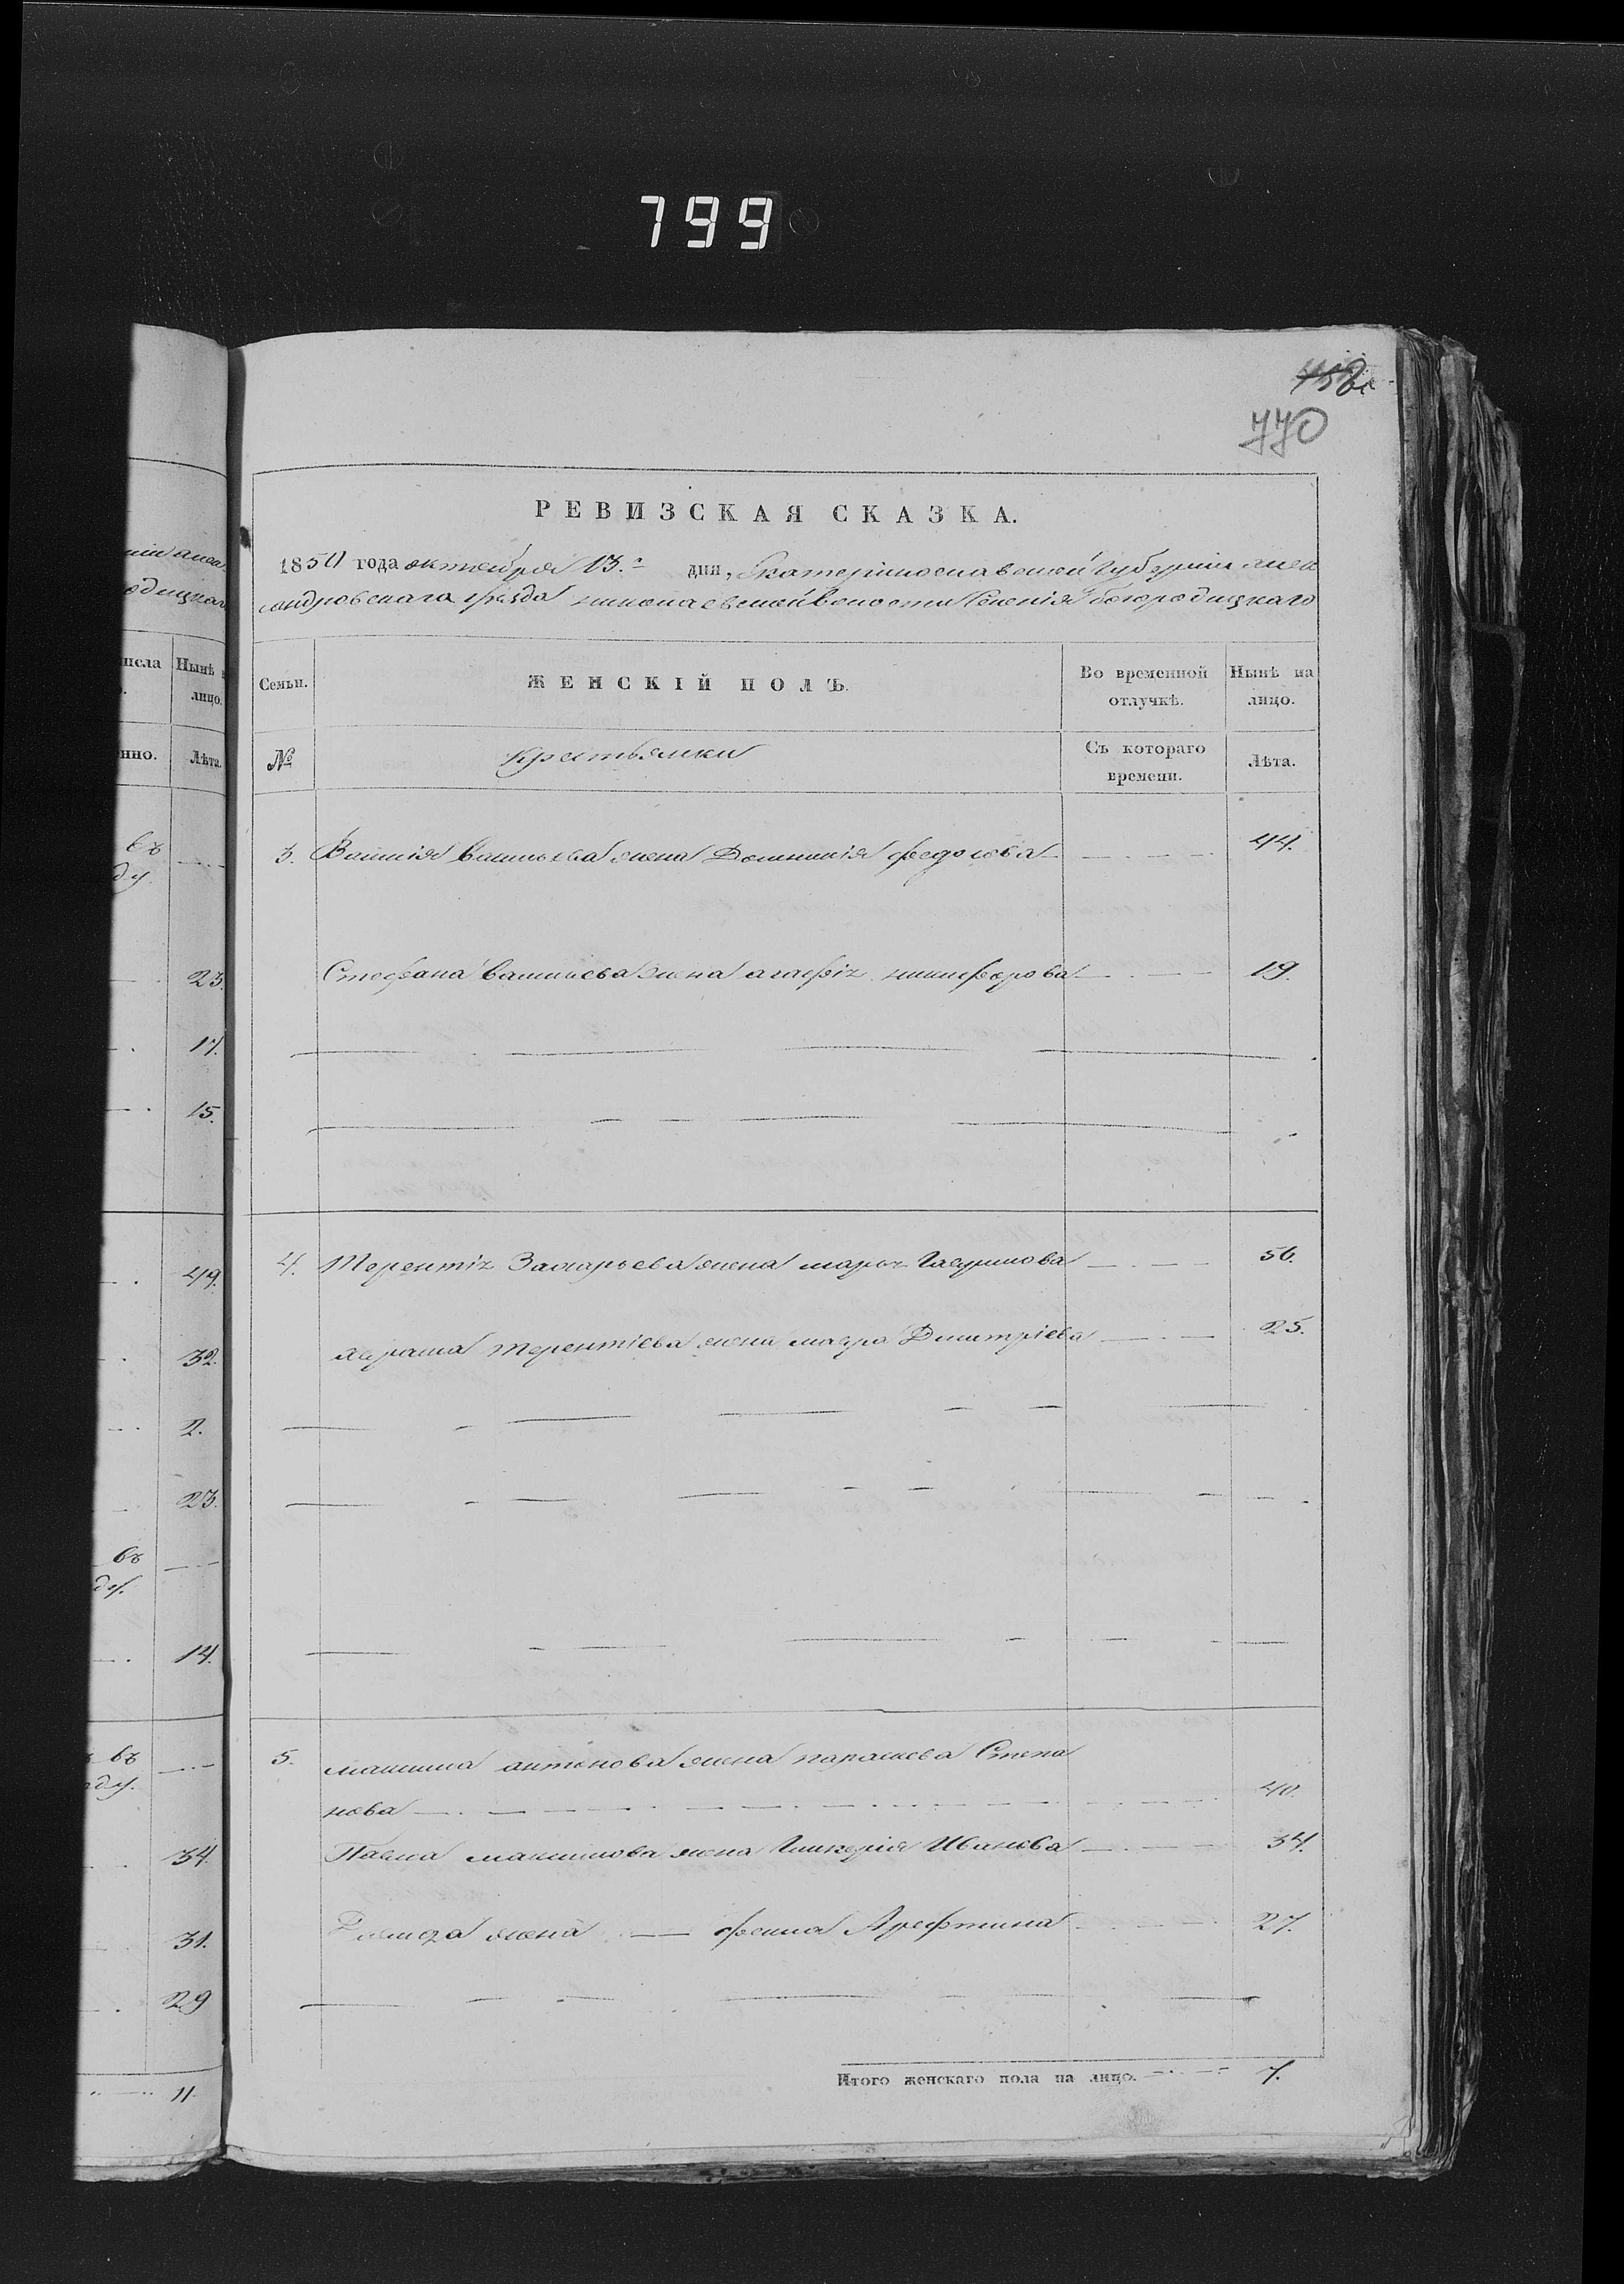 799
758
770
РЕВИЗСКАЯ СКАЗКА.
1850 года октября 13.го дня, Екатеринославской Губерніи алек
сандровскаго уѣзда николаевской волости Селенія богородицкаго
Семьи.
ЖЕНСКІЙ ПОЛЪ.
Во временной отлучкѣ.
Нынѣ на лицо.
№
крестьянки
Съ котораго времени.
Лѣта.
3. Василія васильева жена Домникія федосова 44.
Стефана васильева жена агафія никифорова 19.
4. Терентія Захарьева жена марья Гаврилова 56.
авраама терентіева жена мавра Дмитріева 25.
5. максима антонова жена параскева Степа
нова 40.
Павла максимова жена Гликерія Иванова 34.
жена фекла Арефтина 27.
Итого женскаго пола на лицо. 7.
ніи алек
одицкаго
Нынѣ
лицо.
нно.
Лѣта.
въ
ду
23.
17.
15.
49.
32.
2.
23.
въ
ду.
14.
въ
ду.
34.
31.
29
11.